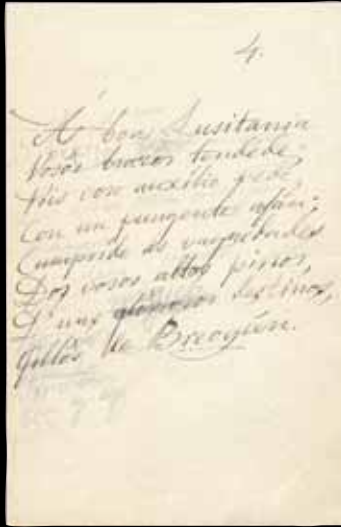 4.
Á boa Lusitania
Vosos brazos tendede,
Pois vos auxilio pede,
Con un pungente afán;
Cumpride as vaguedades
Dos vosos altos pinos,
D'uns gloriosos destinos,
de Breogán.